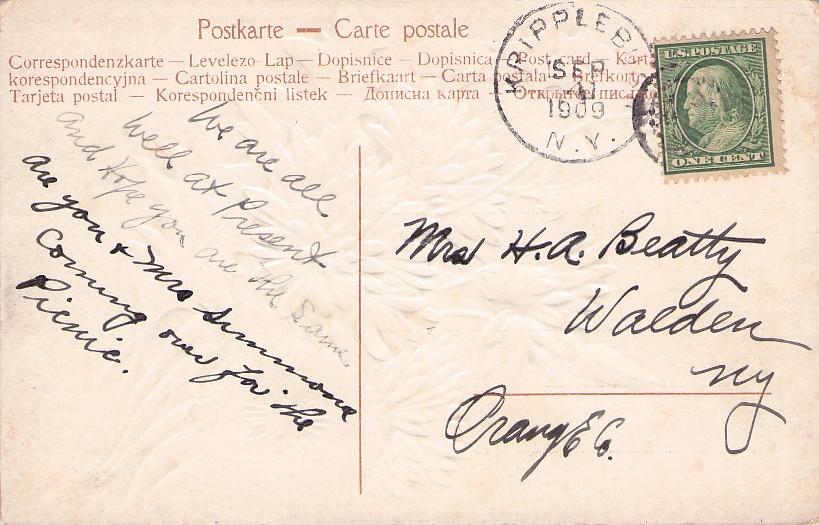 Postkarte — Carte postale
Correspondenzkarte — Levelezo-Lap — Dopisnice — Dopisnica — Post card — Kart
korespondencyjna — Cartolina postale — Briefkaart — Carta postala — Brefkort
Tarjeta postal — Korespondenčni listek — Дописна карта — Открытое письмо
KRIPPLEBU
SEP
1909
N.Y.
U.S. POSTAGE
ONE CENT
We are all
well at Present
and Hope you are the Same
are you & Mrs Simmons
coming over for the
Picnic.
Mrs H.A. Beatty
Walden
NY
Orange Co.